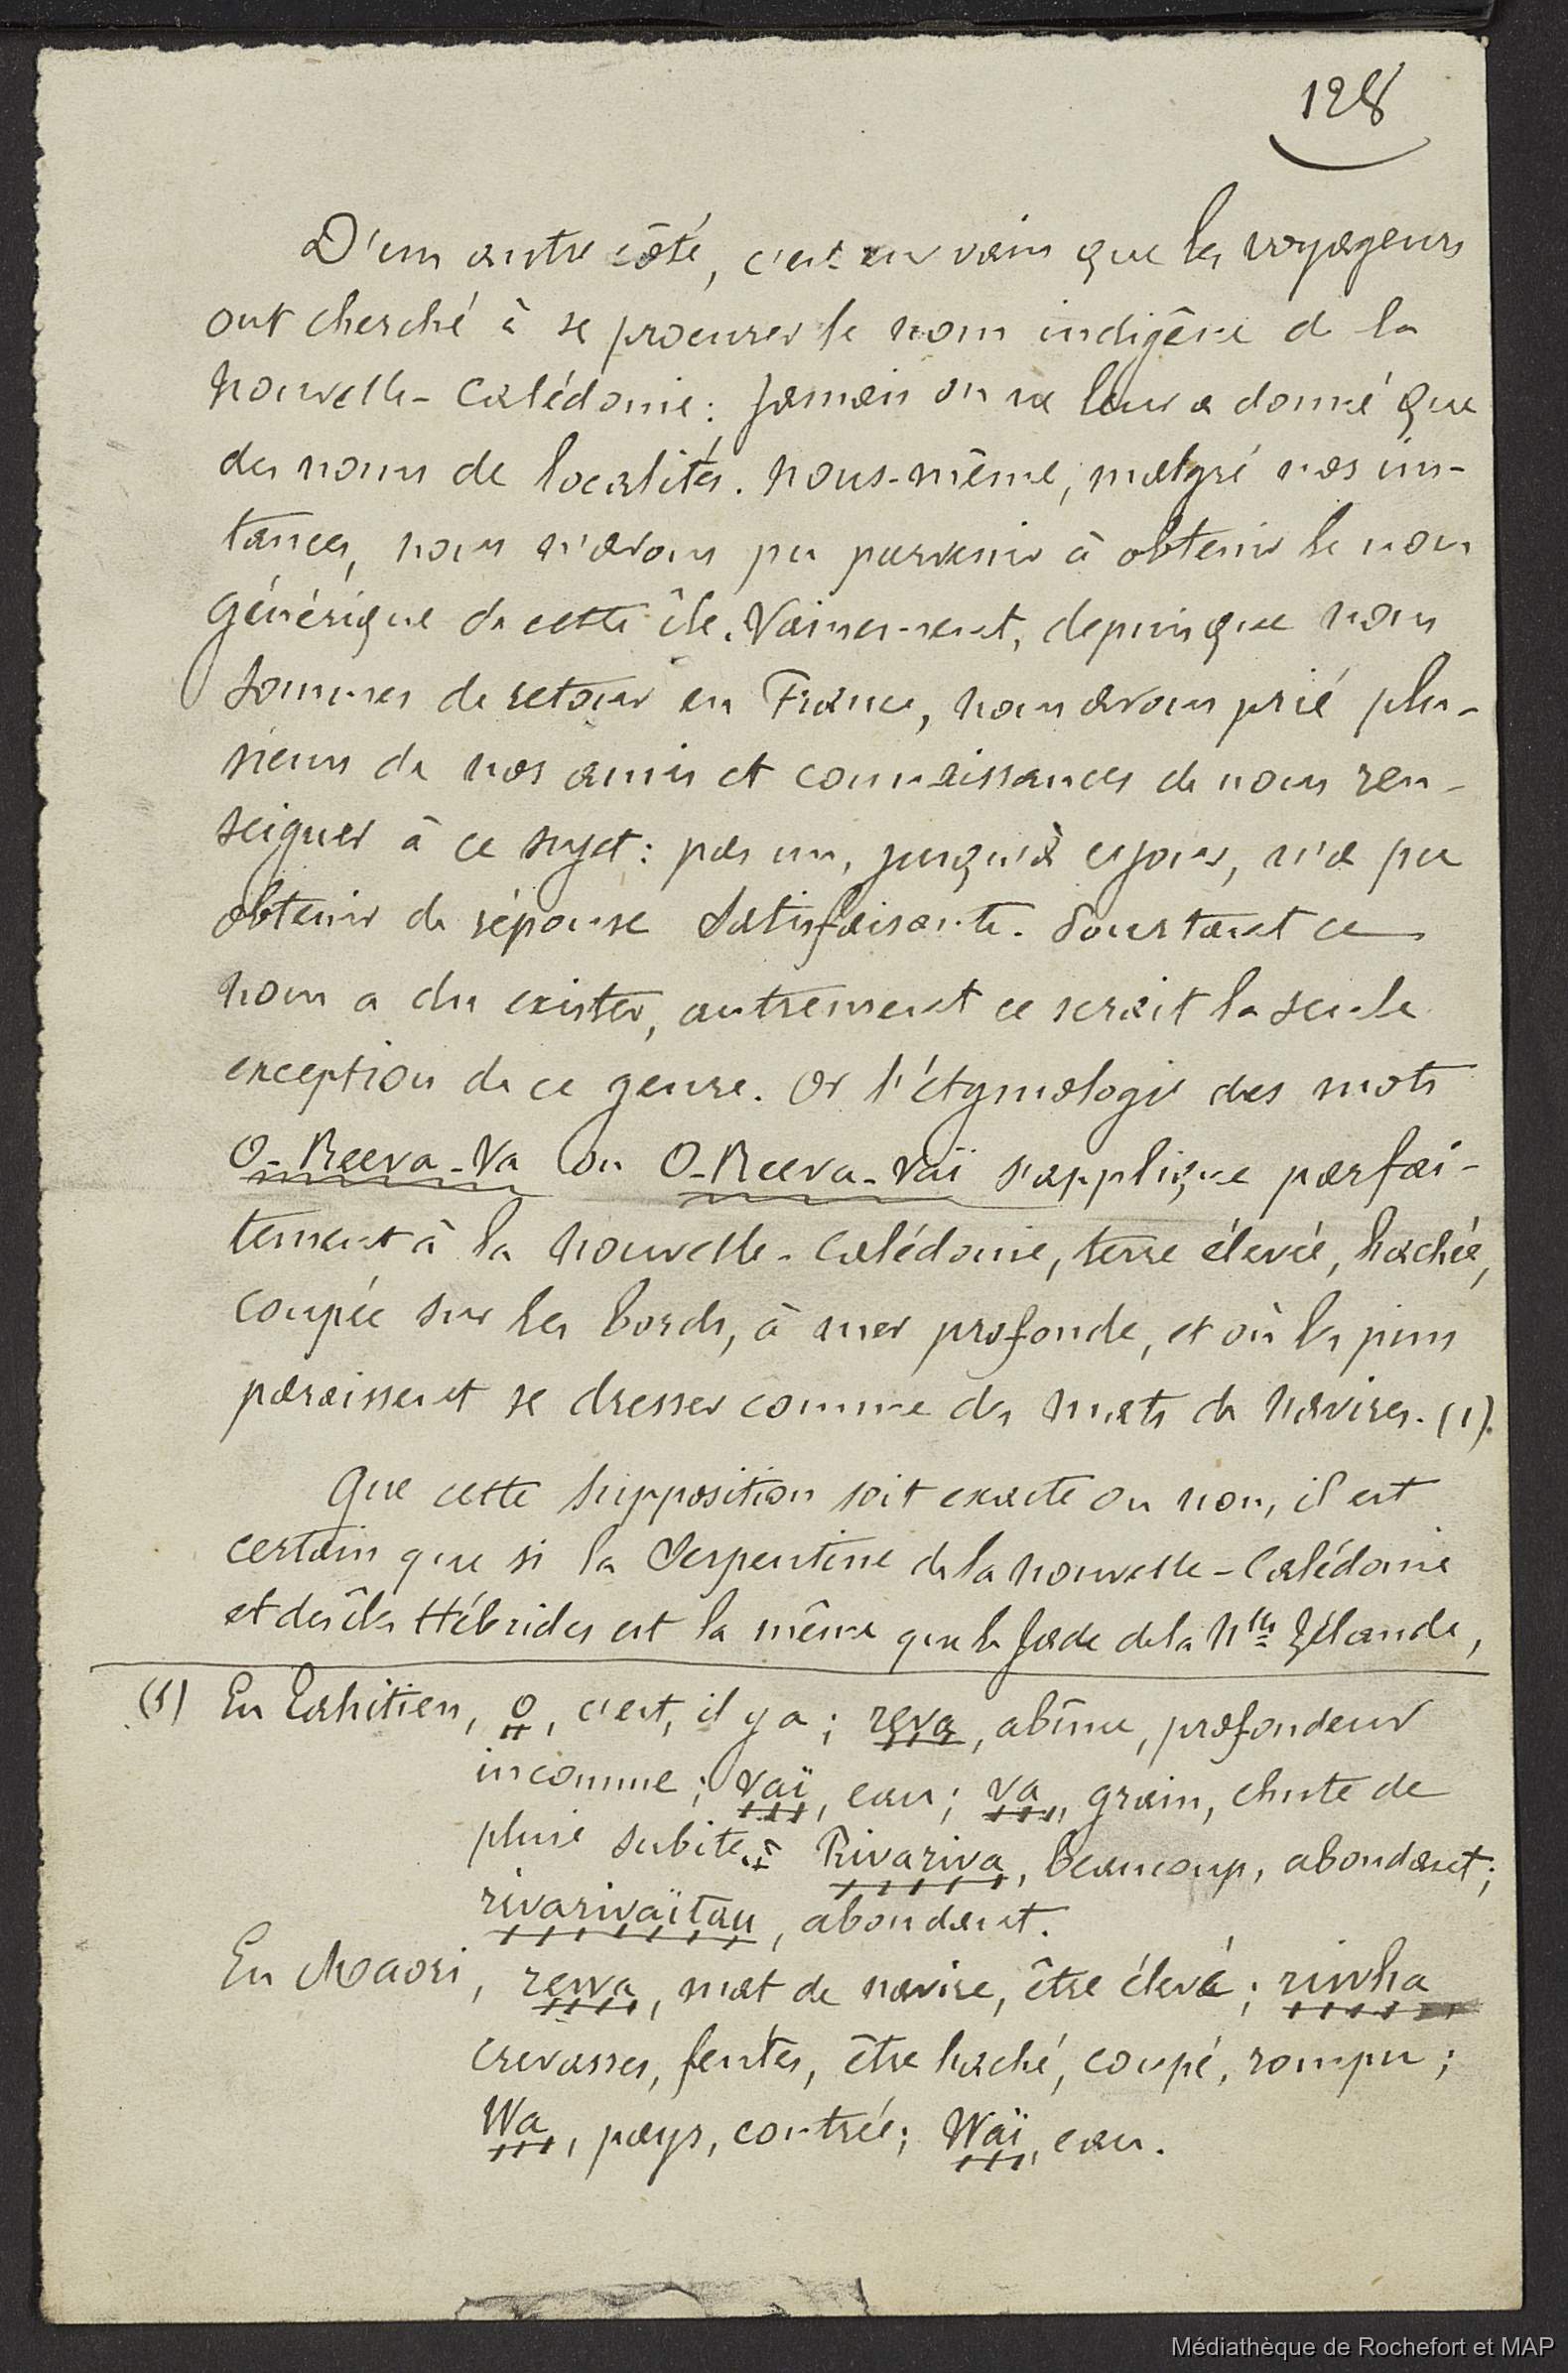 128
D'un autre côté, c'est en vain que les voyageurs
ont cherché à se procurer le nom indigène de la
Nouvelle-Calédonie : Jamais on ne leur a donné que
des noms de localités. Nous-même, malgré nos ins-
tances, nous n'avons pu parvenir à obtenir le nom
générique de cette île. Vainement, depuis que nous
sommes de retour en France, nous avons prié plu-
sieurs de nos amis et connaissances de nous ren-
seigner à ce sujet : pas un, jusqu'à ce jour, n'a pu
obtenir de réponse satisfaisante. Pourtant ce
nom a du exister, autrement ce serait la seule
exception de ce genre. Or l'étymologie des mots
O-Reeva-Va ou O-Reeva-Vaï s'applique parfai-
tement à la Nouvelle-Calédonie, terre élevée, hachée,
coupée sur les bords, à mer profonde, et où les pins
paraissent se dresser comme des mats de navires. (1).
Que cette supposition soit exacte ou non, il est
certain que si la Serpentine de la Nouvelle-Calédonie
et des îles Hébrides est la même que le Jade de la Nlle Zélande,
(1) En Tahitien, o, c'est, il y a ; reva, abîme, profondeur
inconnue ; vaï, eau ; va, grain, chute de
pluie subite. Rivariva, beaucoup, abondant ;
rivarivaïtau, abondant.
En Maori, rewa, mat de navire, être élevé ; riwha
crevasses, fentes, être haché, coupé, rompu ;
Wa, pays, contrée ; Waï, eau.
Médiathèque de Rochefort et MAP